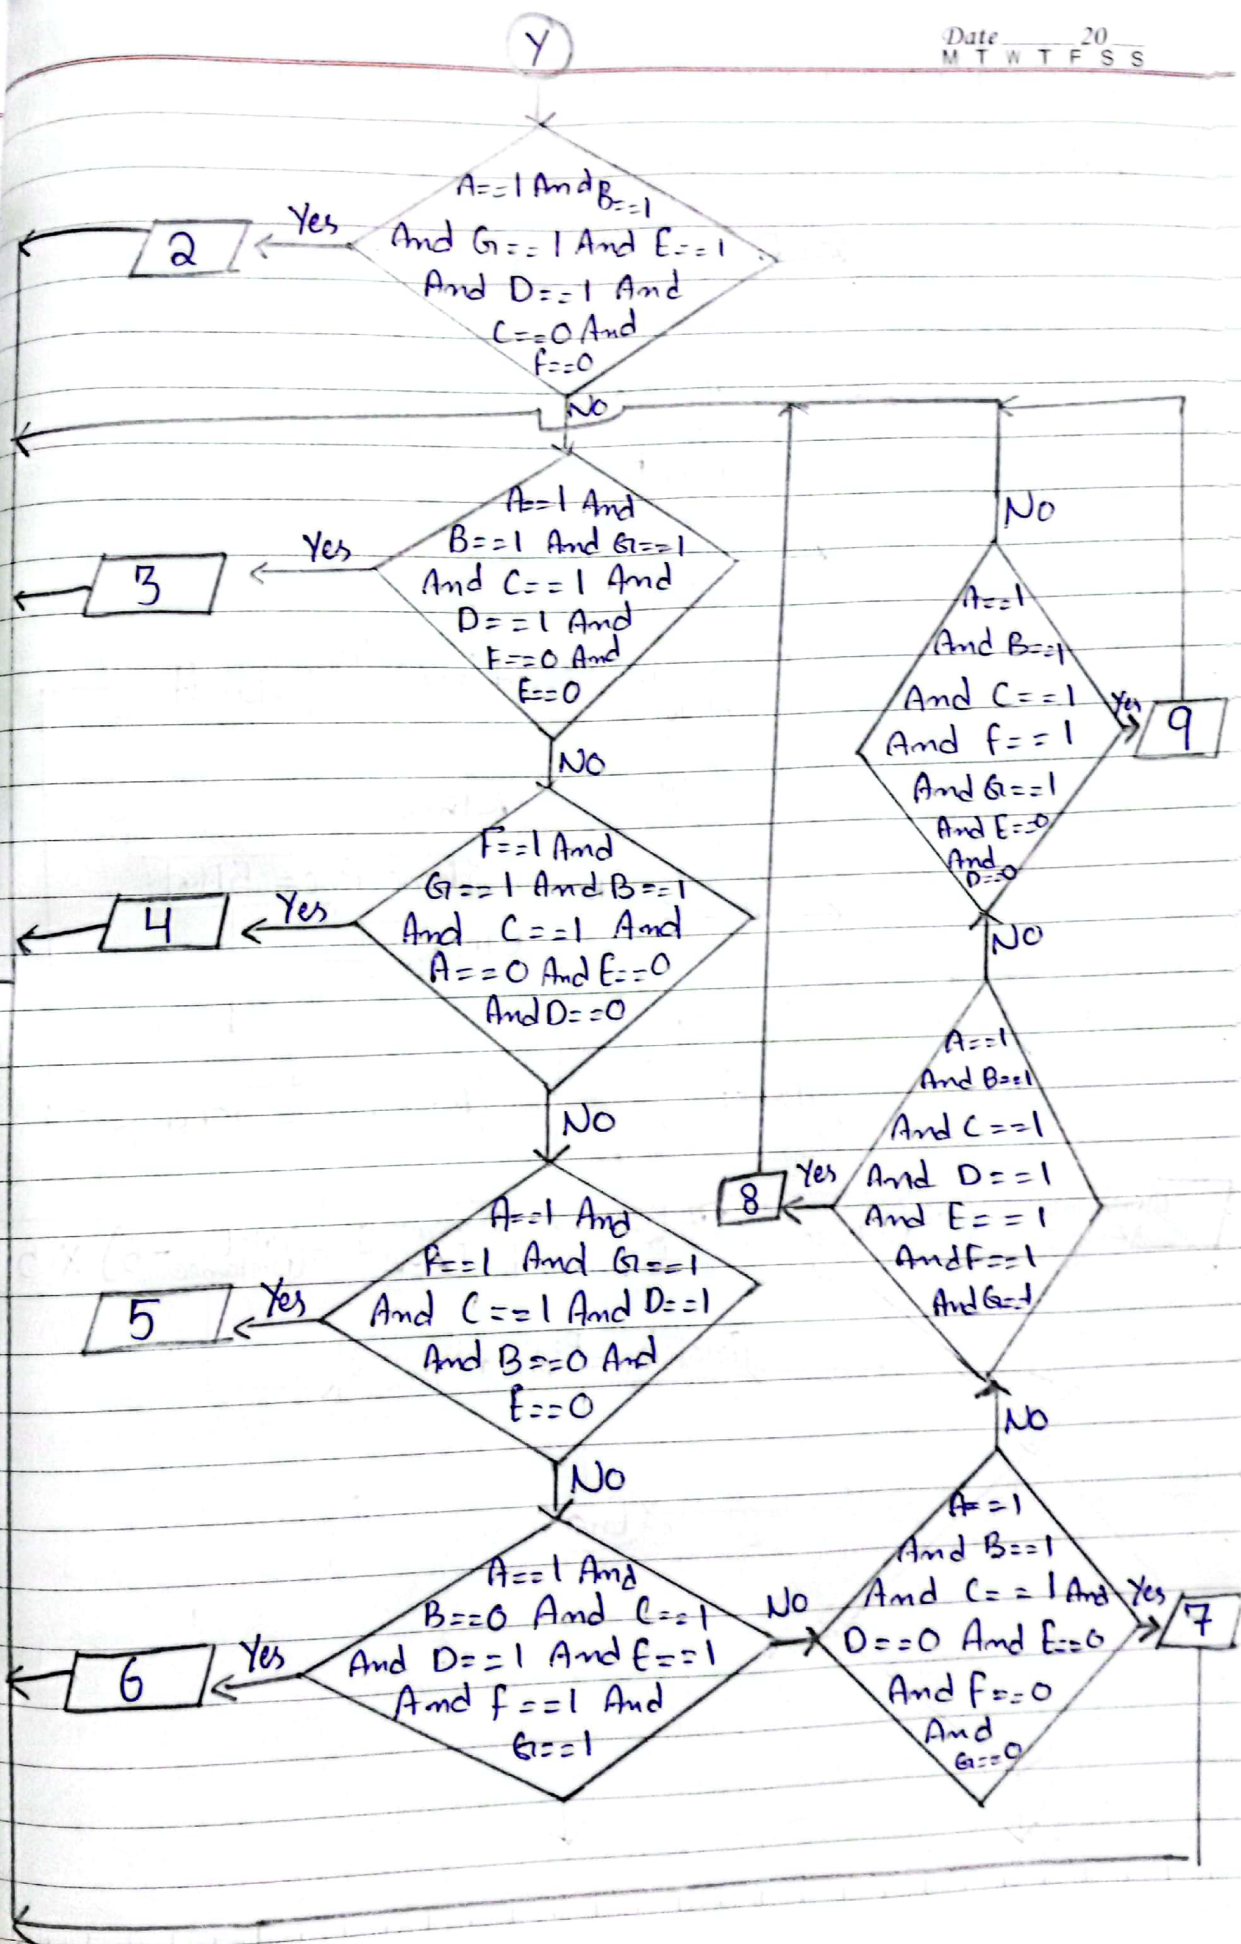 Y
Date 20
M T W T F S S
A==1 And B==1
And G==1 And E==1
And D==1 And
C==0 And
F==0
Yes
2
No
A==1 And
B==1 And G==1
And C==1 And
D==1 And
F==0 And
E==0
Yes
3
NO
F==1 And
G==1 And B==1
And C==1 And
A==0 And E==0
And D==0
Yes
4
NO
A==1 And
F==1 And G==1
And C==1 And D==1
And B==0 And
E==0
Yes
5
NO
A==1 And
B==0 And C==1
And D==1 And E==1
And f==1 And
G==1
Yes
6
NO
A==1
And B==1
And C==1 And
D==0 And E==0
And f==0
And
G==0
Yes
7
NO
A==1
And B==1
And C==1
And D==1
And E==1
And F==1
And G==1
Yes
8
NO
A==1
And B==1
And C==1
And f==1
And G==1
And E==0
And
D==0
Yes
9
NO